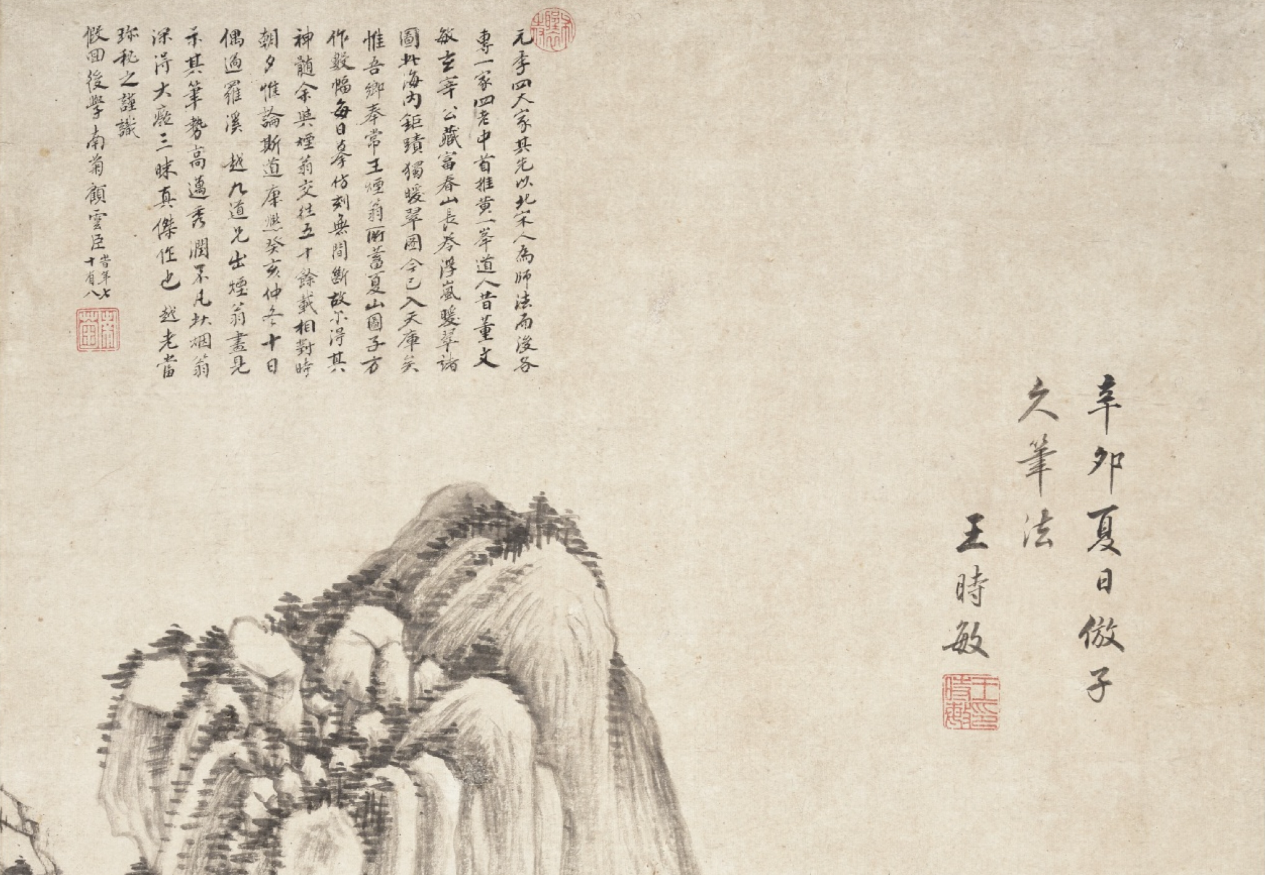 辛卯夏日倣子
久筆法
王時敏
王時敏印
元季四大家其先以北宋人為師法而後各
專一家四老中首推黃一峯道人昔董文
敏玄宰公藏富春山長卷浮嵐暖翠諸
圖此海內鉅蹟獨暖翠圖今已入天庫矣
惟吾鄉奉常王煙翁所蓄夏山圖子方
作數幅每日摹仿刻無間斷故尔得其
神髓余與煙翁交往五十餘載相對時
朝夕惟論斯道康熙癸亥仲冬十日
偶過羅溪 越九道兄出煙翁畫見
示其筆勢高邁秀潤不凡 烟翁
深得大癡三昧真傑作也 越老當
珍秘之謹識
假回後學南菊顧雲臣時年七
十有八